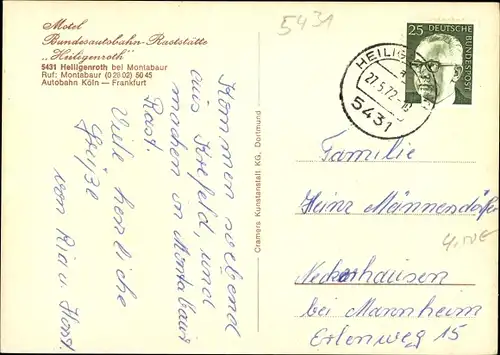 Motel
Bundesautobahn-Raststätte
„Heiligenroth"
5431 Heiligenroth bei Montabaur
Ruf: Montabaur (0 26 02) 50 45
Autobahn Köln — Frankfurt
Kommen soebend
aus Krefeld, und
machen in Montabaur
Rast.
Viele herzliche
Grüße
von Ria u. Horst.
Cramers Kunstanstalt KG, Dortmund
5431
25 DEUTSCHE
BUNDESPOST
HEILIG
27.5.72
5431
Familie
Heinz Männendörfer
Neckarhausen
bei Mannheim
Erlenweg 15